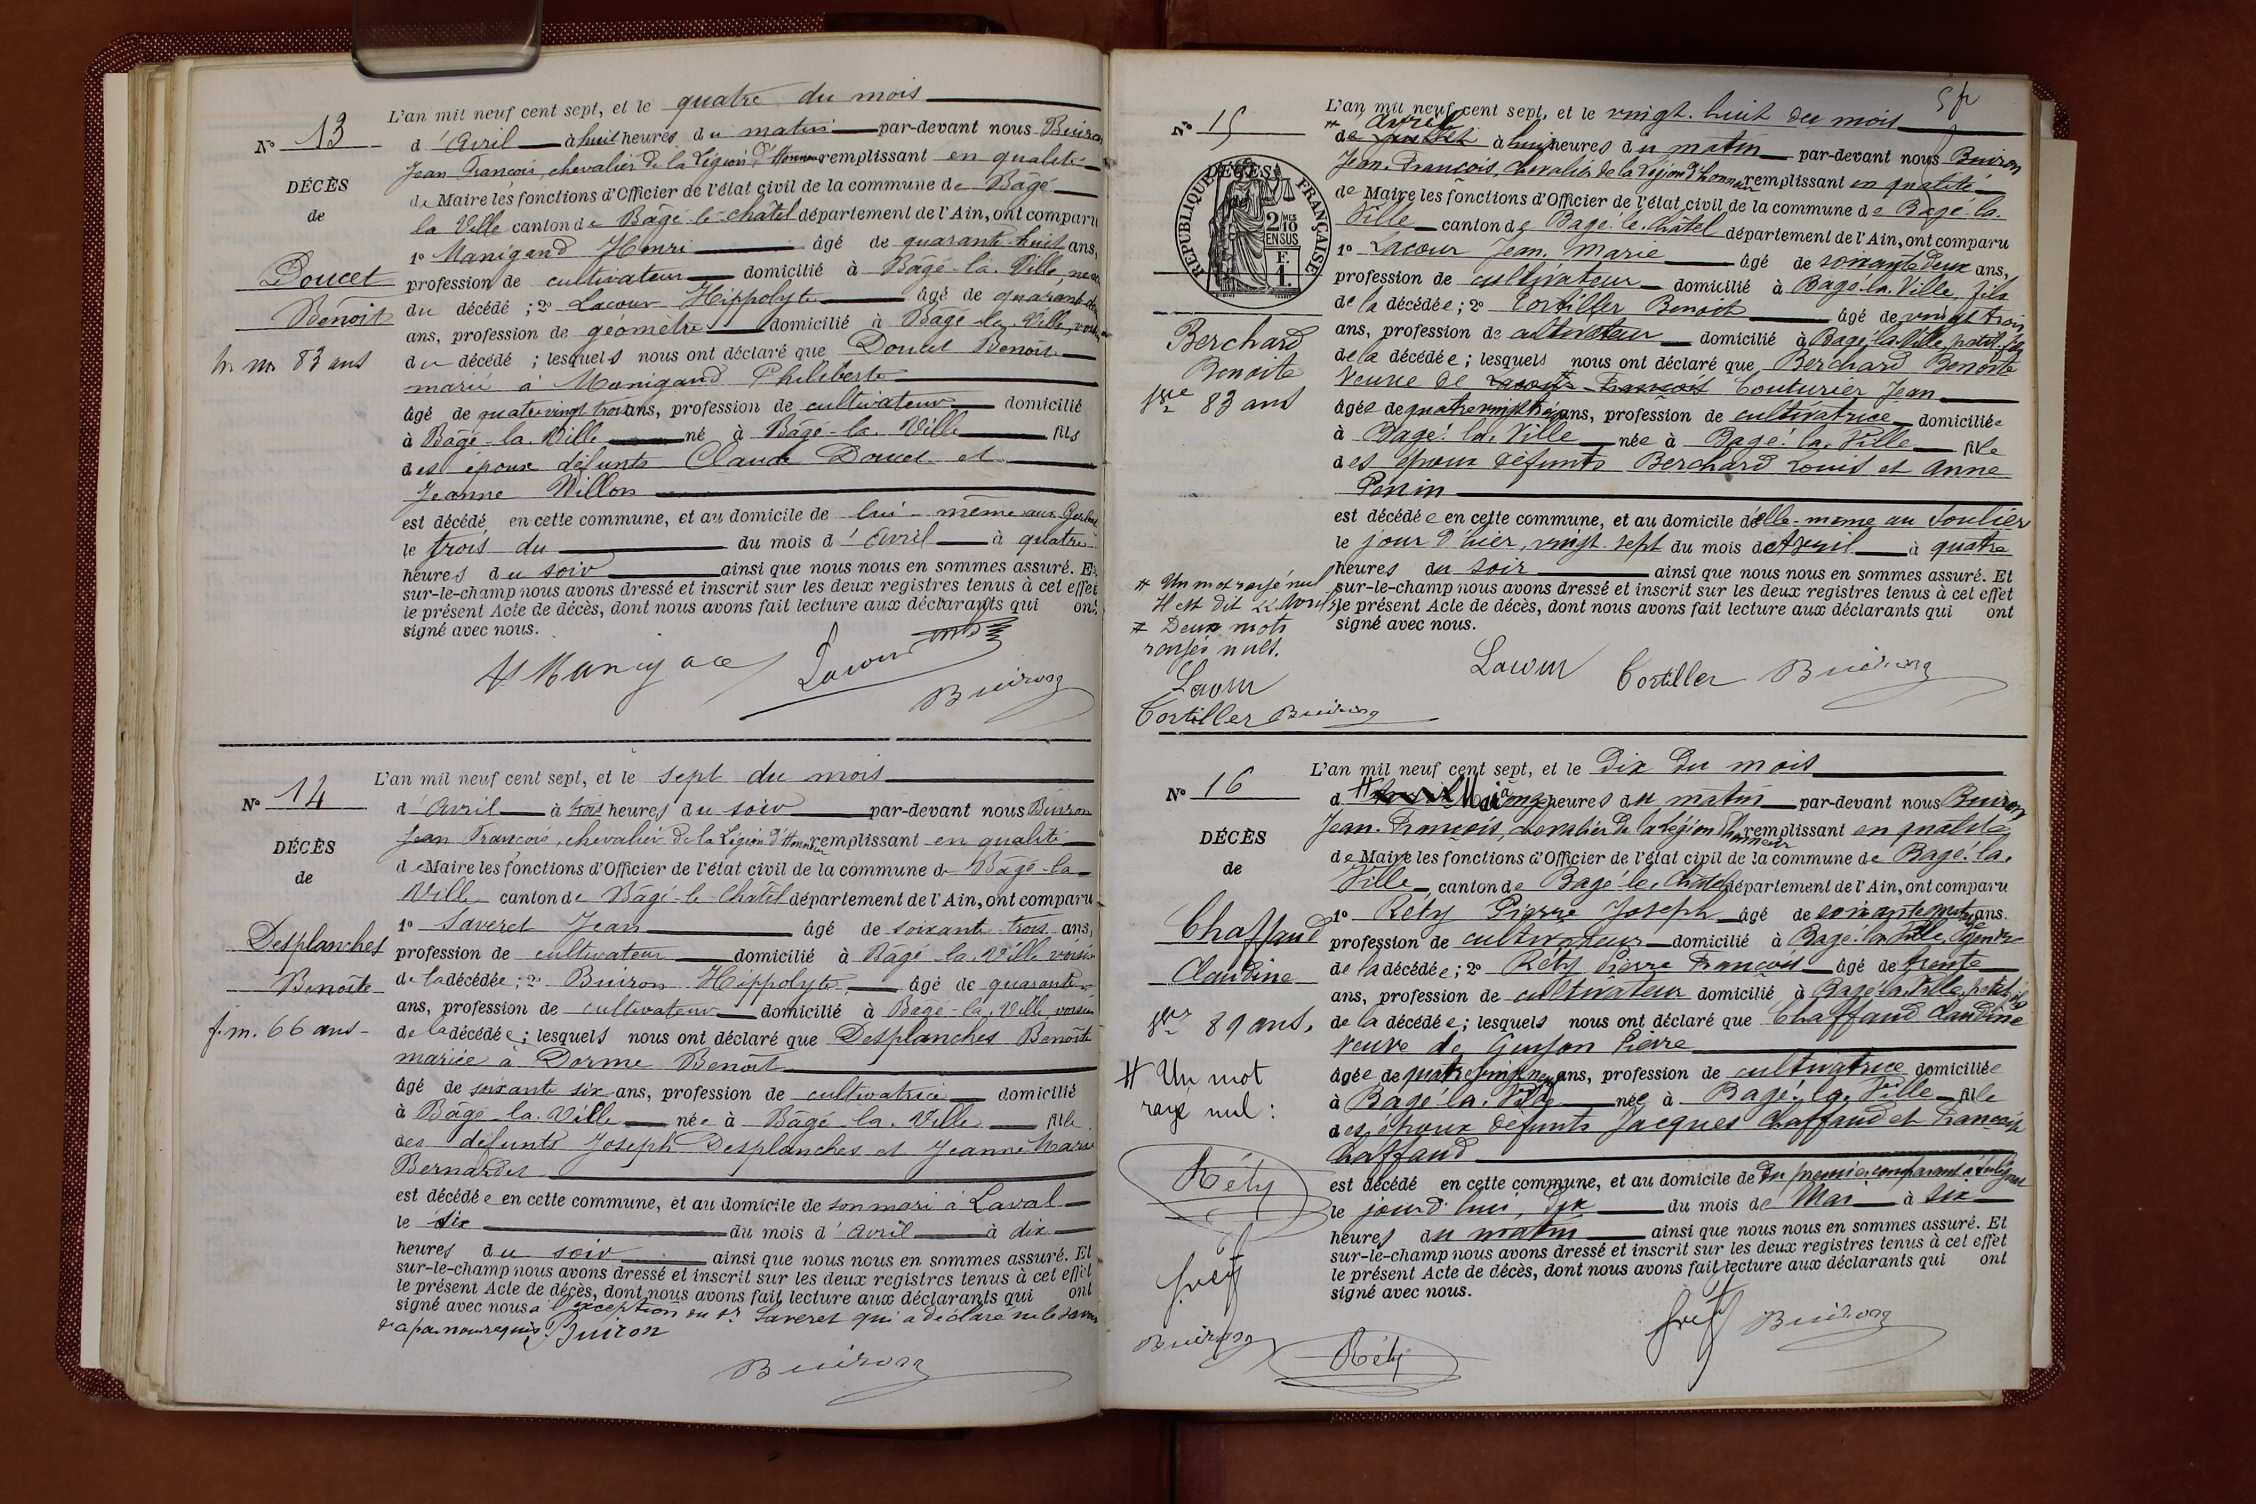 L'an mil neuf cent sept, et le quatre du mois
N° 13
d'Avril à huit heures du matin par-devant nous Buiron
Jean François, chevalier de la Légion d'Honneur remplissant en qualité
DÉCÈS
de Maire les fonctions d'Officier de l'état civil de la commune de Bâgé
de
la Ville canton de Bâgé-le-Chatel département de l'Ain, ont comparu
1° Manigand Henri âgé de quarante-huit ans,
Doucet
profession de cultivateur domicilié à Bâgé-la-Ville, neveu
Benoît
du décédé ; 2° Lacour Hippolyte âgé de quarante
ans, profession de géomètre domicilié à Bâgé-la-Ville, voisin
h. m. 83 ans
du décédé ; lesquels nous ont déclaré que Doucet Benoît
marié à Manigand Philiberte
âgé de quatre vingt trois ans, profession de cultivateur domicilié
à Bâgé-la-Ville né à Bâgé-la-Ville fils
des époux défunts Claude Doucet et
Jeanne Villon
est décédé en cette commune, et au domicile de lui-même aux
le trois du du mois d'Avril à quatre
heures du soir ainsi que nous nous en sommes assuré. Et
sur-le-champ nous avons dressé et inscrit sur les deux registres tenus à cet effet
le présent Acte de décès, dont nous avons fait lecture aux déclarants qui ont
signé avec nous.
Lacour
Buiron
L'an mil neuf cent sept, et le sept du mois
N° 14
d'Avril à trois heures du soir par-devant nous Buiron
Jean François, chevalier de la Légion d'Honneur remplissant en qualité
DÉCÈS
de Maire les fonctions d'Officier de l'état civil de la commune de Bâgé-la-
de
Ville canton de Bâgé-le-Chatel département de l'Ain, ont comparu
1° Saveret Jean âgé de soixante trois ans,
Desplanches
profession de cultivateur domicilié à Bâgé-la-Ville voisin
Benoîte
de la décédée ; 2° Buiron Hippolyte âgé de quarante
ans, profession de cultivateur domicilié à Bâgé-la-Ville, voisin
f. m. 66 ans
de la décédée ; lesquels nous ont déclaré que Desplanches Benoîte
mariée à Dorme Benoît
âgé de soixante six ans, profession de cultivatrice domicilié
à Bâgé-la-Ville née à Bâgé-la-Ville fille
des défunts Joseph Desplanches et Jeanne Marie
Bernardet
est décédée en cette commune, et au domicile de son mari à Laval
le six du mois d'Avril à dix
heures du soir ainsi que nous nous en sommes assuré. Et
sur-le-champ nous avons dressé et inscrit sur les deux registres tenus à cet effet
le présent Acte de décès, dont nous avons fait lecture aux déclarants qui ont
signé avec nous à l'exception du sr Saveret qui a déclaré ne le savoir
de ce par nous requis. Buiron
Buiron
5 fr
L'an mil neuf cent sept, et le vingt-huit du mois
N° 15
# avril
de à huit heures du matin par-devant nous Buiron
Jean-François, chevalier de la Légion d'honneur remplissant en qualité
DÉCÈS
RÉPUBLIQUE FRANÇAISE
2/10 MES
EN SUS
F.
1.
de Maire les fonctions d'Officier de l'état civil de la commune de Bagé-la-
Ville canton de Bagé-le-Châtel département de l'Ain, ont comparu
1° Lacour Jean-Marie âgé de soixante deux ans,
profession de cultivateur domicilié à Bagé-la-Ville, fils
de la décédée ; 2° Cortiller Benoit âgé de vingt trois
Berchard
ans, profession de cultivateur domicilié à Bagé-la-Ville, petit-fils
Benoite
de la décédée ; lesquels nous ont déclaré que Berchard Benoite
Vve 83 ans
veuve de Lacour François Couturier Jean
âgée de quatre vingt trois ans, profession de cultivatrice domiciliée
à Bagé-la-Ville née à Bagé-la-Ville fille
des époux défunts Berchard Louis et Anne
Ponin
est décédée en cette commune, et au domicile d'elle-même au Soulier
le jour d'hier, vingt-sept du mois d'Avril à quatre
heures du soir ainsi que nous nous en sommes assuré. Et
# Un mot rayé nul
sur-le-champ nous avons dressé et inscrit sur les deux registres tenus à cet effet
Il est dit « avril »
le présent Acte de décès, dont nous avons fait lecture aux déclarants qui ont
# Deux mots
signé avec nous.
rayés nuls.
Lacour Cortiller Buiron
Lacour
Cortiller Buiron
L'an mil neuf cent sept, et le dix du mois
N° 16
d # Avril Mai à onze heures du matin par-devant nous Buiron
Jean-François, chevalier de la Légion d'honneur remplissant en qualité
DÉCÈS
de Maire les fonctions d'Officier de l'état civil de la commune de Bagé-la-
de
Ville canton de Bagé-le-Châtel département de l'Ain, ont comparu
1° Réty Pierre Joseph âgé de ans.
Chaffaud
profession de cultivateur domicilié à Bagé-la-Ville, gendre
Claudine
de la décédée ; 2° Réty Pierre François âgé de trente
ans, profession de cultivateur domicilié à Bagé-la-Ville, petit-fils
Vve 89 ans.
de la décédée ; lesquels nous ont déclaré que Chaffaud Claudine
veuve de Guyon Pierre
# Un mot
âgée de quatre vingt neuf ans, profession de cultivatrice domiciliée
rayé nul :
à Bagé-la-Ville née à Bagé-la-Ville fille
des époux défunts Jacques Chaffaud et Françoise
Chaffaud
Réty
est décédé en cette commune, et au domicile de du premier comparant à
le jourd'hui, dix du mois de Mai à six
heures du matin ainsi que nous nous en sommes assuré. Et
sur-le-champ nous avons dressé et inscrit sur les deux registres tenus à cet effet
le présent Acte de décès, dont nous avons fait lecture aux déclarants qui ont
signé avec nous.
Buiron
Buiron
Réty